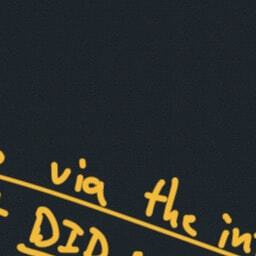 via the
DID